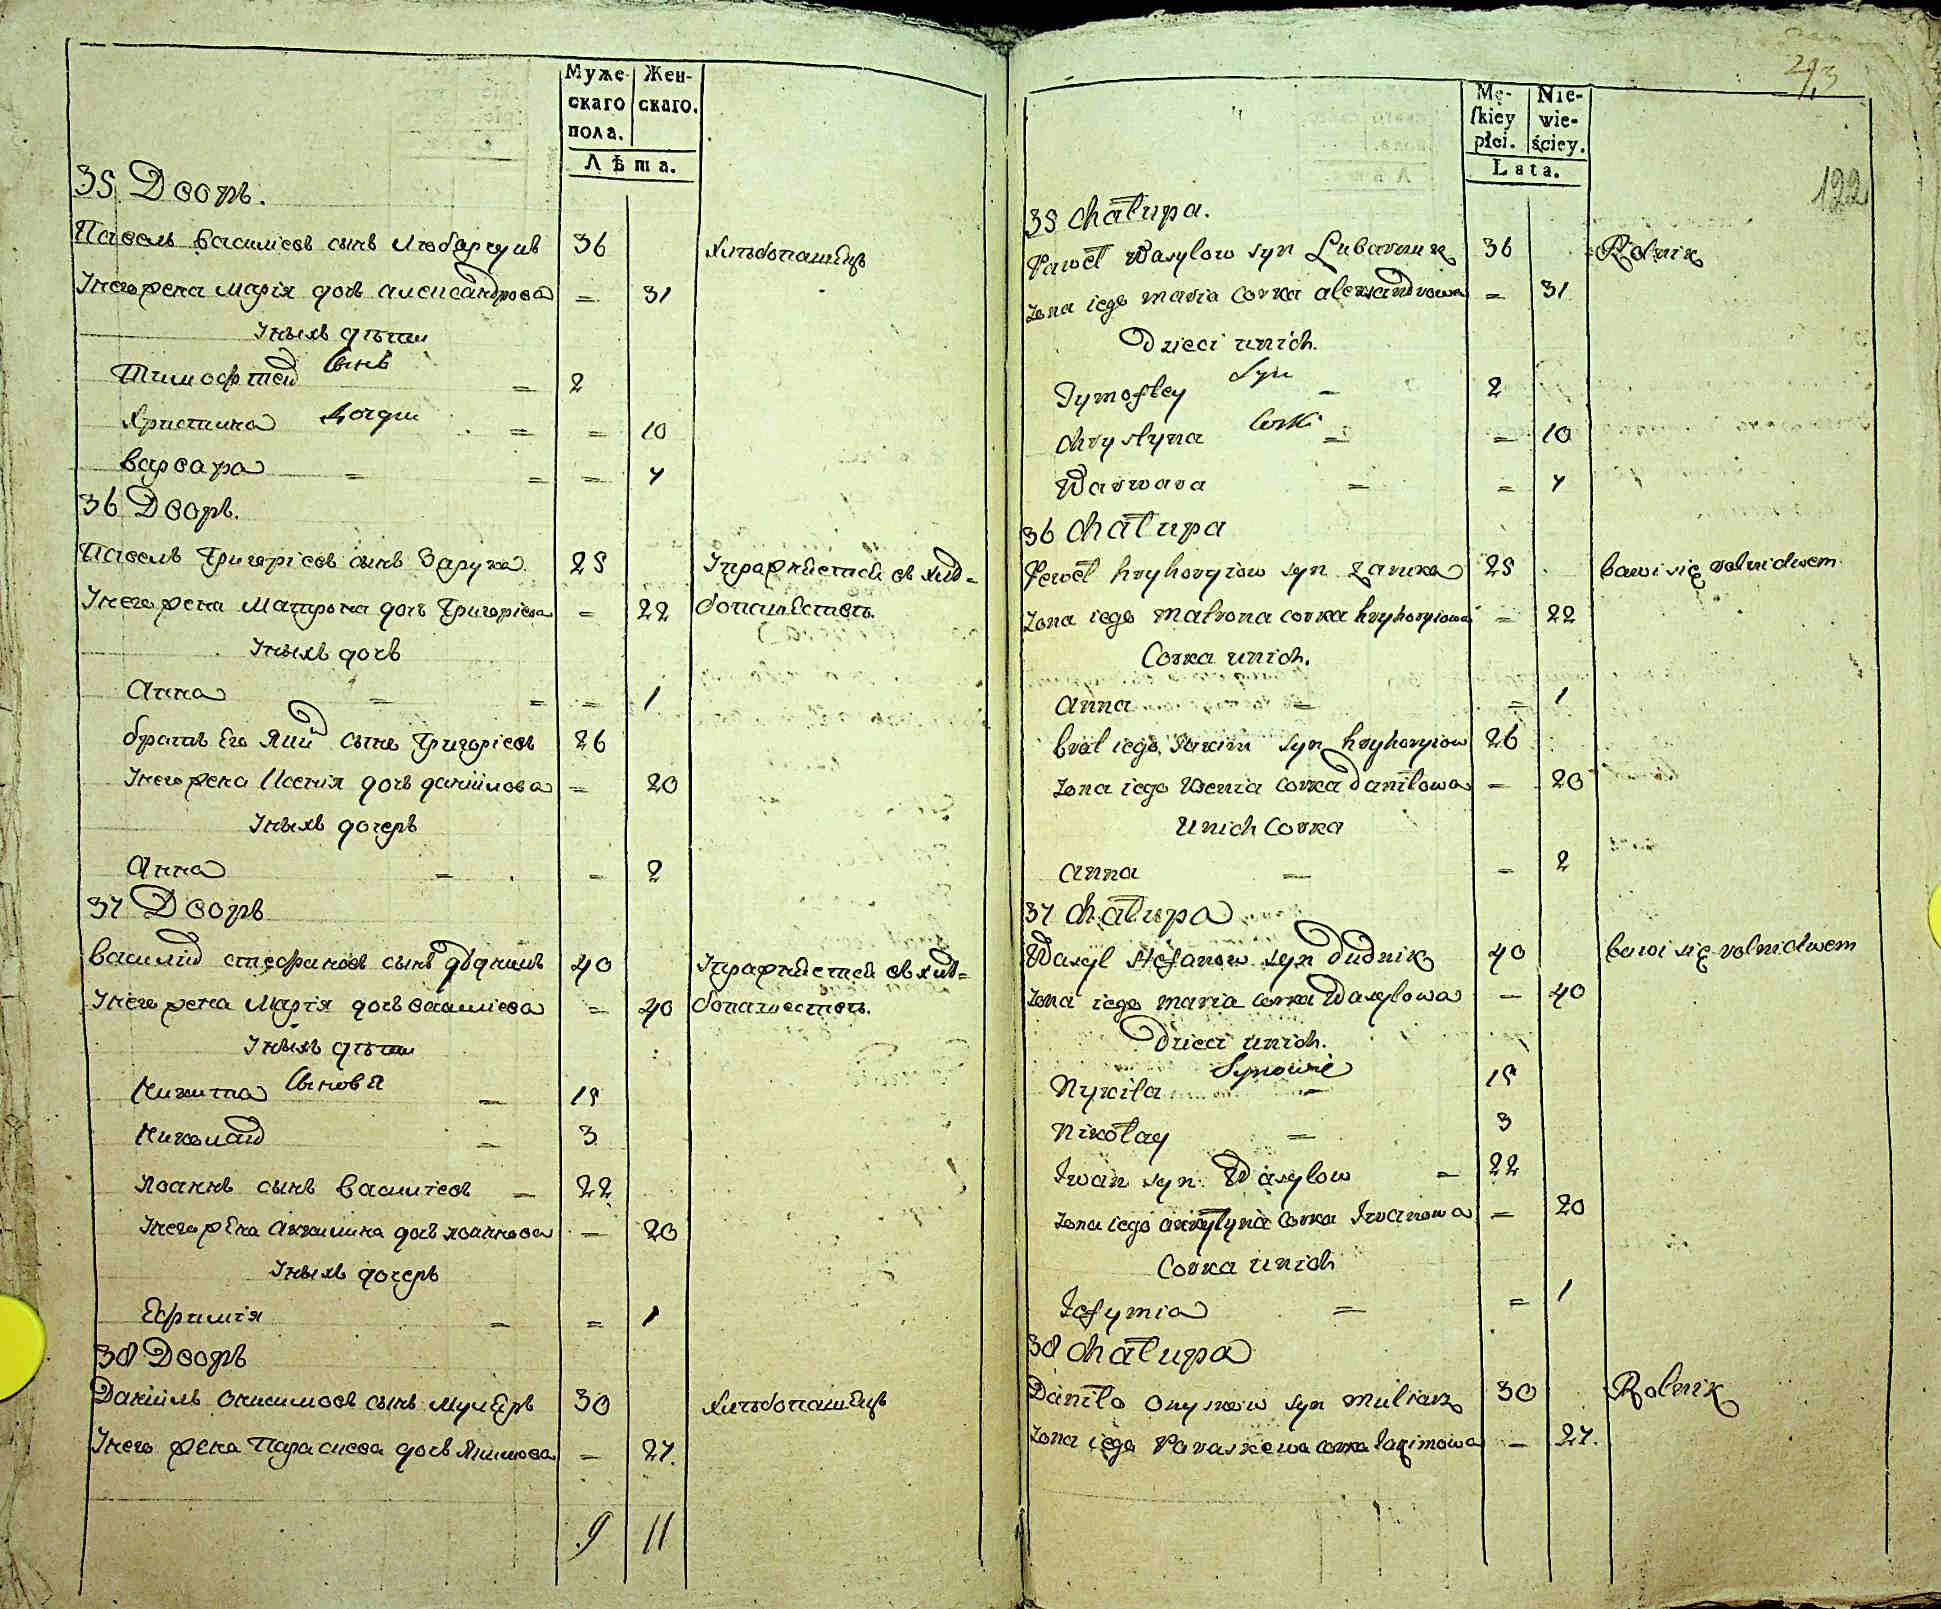 Муже- Жен-
скаго скаго.
пола.
Лѣта.
35 Дворъ.
Павелъ Василіевъ сынъ Любарчукъ 36 Хлѣбопашецъ
Жена Марія дочь Александрова = 31
Ихъ дѣти
Тимофтей Сынъ = 2
Христина дочери = = 10
Варвара = = = 7
36 Дворъ.
Павелъ Григоріевъ сынъ Зарука 25 Упражняется въ хлѣ-
Жена Матрона дочь Григоріева = 22 бопашествѣ.
дочь
Анна = = = 1
братъ Его сынъ Григоріевъ 26
Жена Ксенія дочь Даниілова = 20
дочерь
Анна = = 2
37 Дворъ
Василій Стефановъ сынъ Дудникъ 40 Упражняется въ хлѣ=
Жена Марія дочь Василіева = 40 бопашествѣ.
дѣти
Никита Сыновья = 15
Николай = 3
Иоаннъ сынъ Василіевъ = 22
Жена Акилина дочь Иоаннова = 20
дочерь
Ефимія = = 1
38 Дворъ
Даніилъ Онисимовъ сынъ Муляръ 30 Хлѣбопашецъ
Жена Параскева дочь Якимова = 27.
9 11
293
122
Mę- Nie-
skiey wie-
płci. ściey.
Lata.
35 Chałupa.
Paweł Wasylow syn Lubarczuk 36 Rolnik
Zona iego Maria Corka alexandrowa = 31
Dzieci unich.
Tymoftey Syn = 2
Chrystyna Corki = = 10
Warwara = = 7
36 Chałupa
Paweł hryhoryiow syn Zaruka 25 bawi się rolnictwem
Zona iego Matrona corka hryhoryiowa = 22
Corka unich.
Anna = = 1
brat iego Jakim syn hryhoryiow 26
Zona iego Xenia Corka Daniłowa = 20
Unich Corka
Anna = = 2
37 Chałupa
Wasyl Stefanow syn Dudnik 40 bawi się rolnictwem
Zona iego Maria corka Wasylowa = 40
Dzieci unich.
Nykita Synowie = 15
Nikołay = 3
Iwan syn Wasylow = 22
Zona iego akylyna Corka Iwanowa = 20
Corka unich
Jefymia = = 1
38 Chałupa
Daniło Onysmow syn Mularz 30 Rolnik
Zona iego Paraskewa corka Jakimowa = 27.